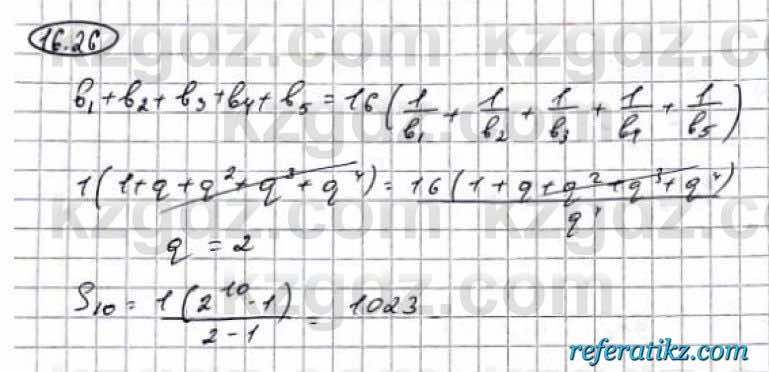 16.26
b₁ + b₂ + b₃ + b₄ + b₅ = 16 (1/b₁ + 1/b₂ + 1/b₃ + 1/b₄ + 1/b₅)
1(1 + q + q² + q³ + q⁴) = 16 (1 + q + q² + q³ + q⁴)/q⁴
q = 2
S₁₀ = 1(2¹⁰ - 1)/(2 - 1) = 1023
referatikz.com